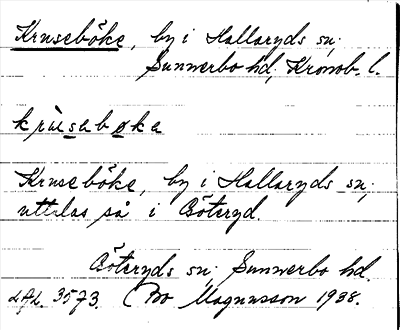 Kruseböke, by i Hallaryds sn;
Sunnerbo hd, Kronob. l.
krùsabøka
Kruseböke, by i Hallaryds sn;
uttalas så i Göteryd.
Göteryds sn; Sunnerbo hd.
LAL. 3573. (Bo Magnusson 1938.